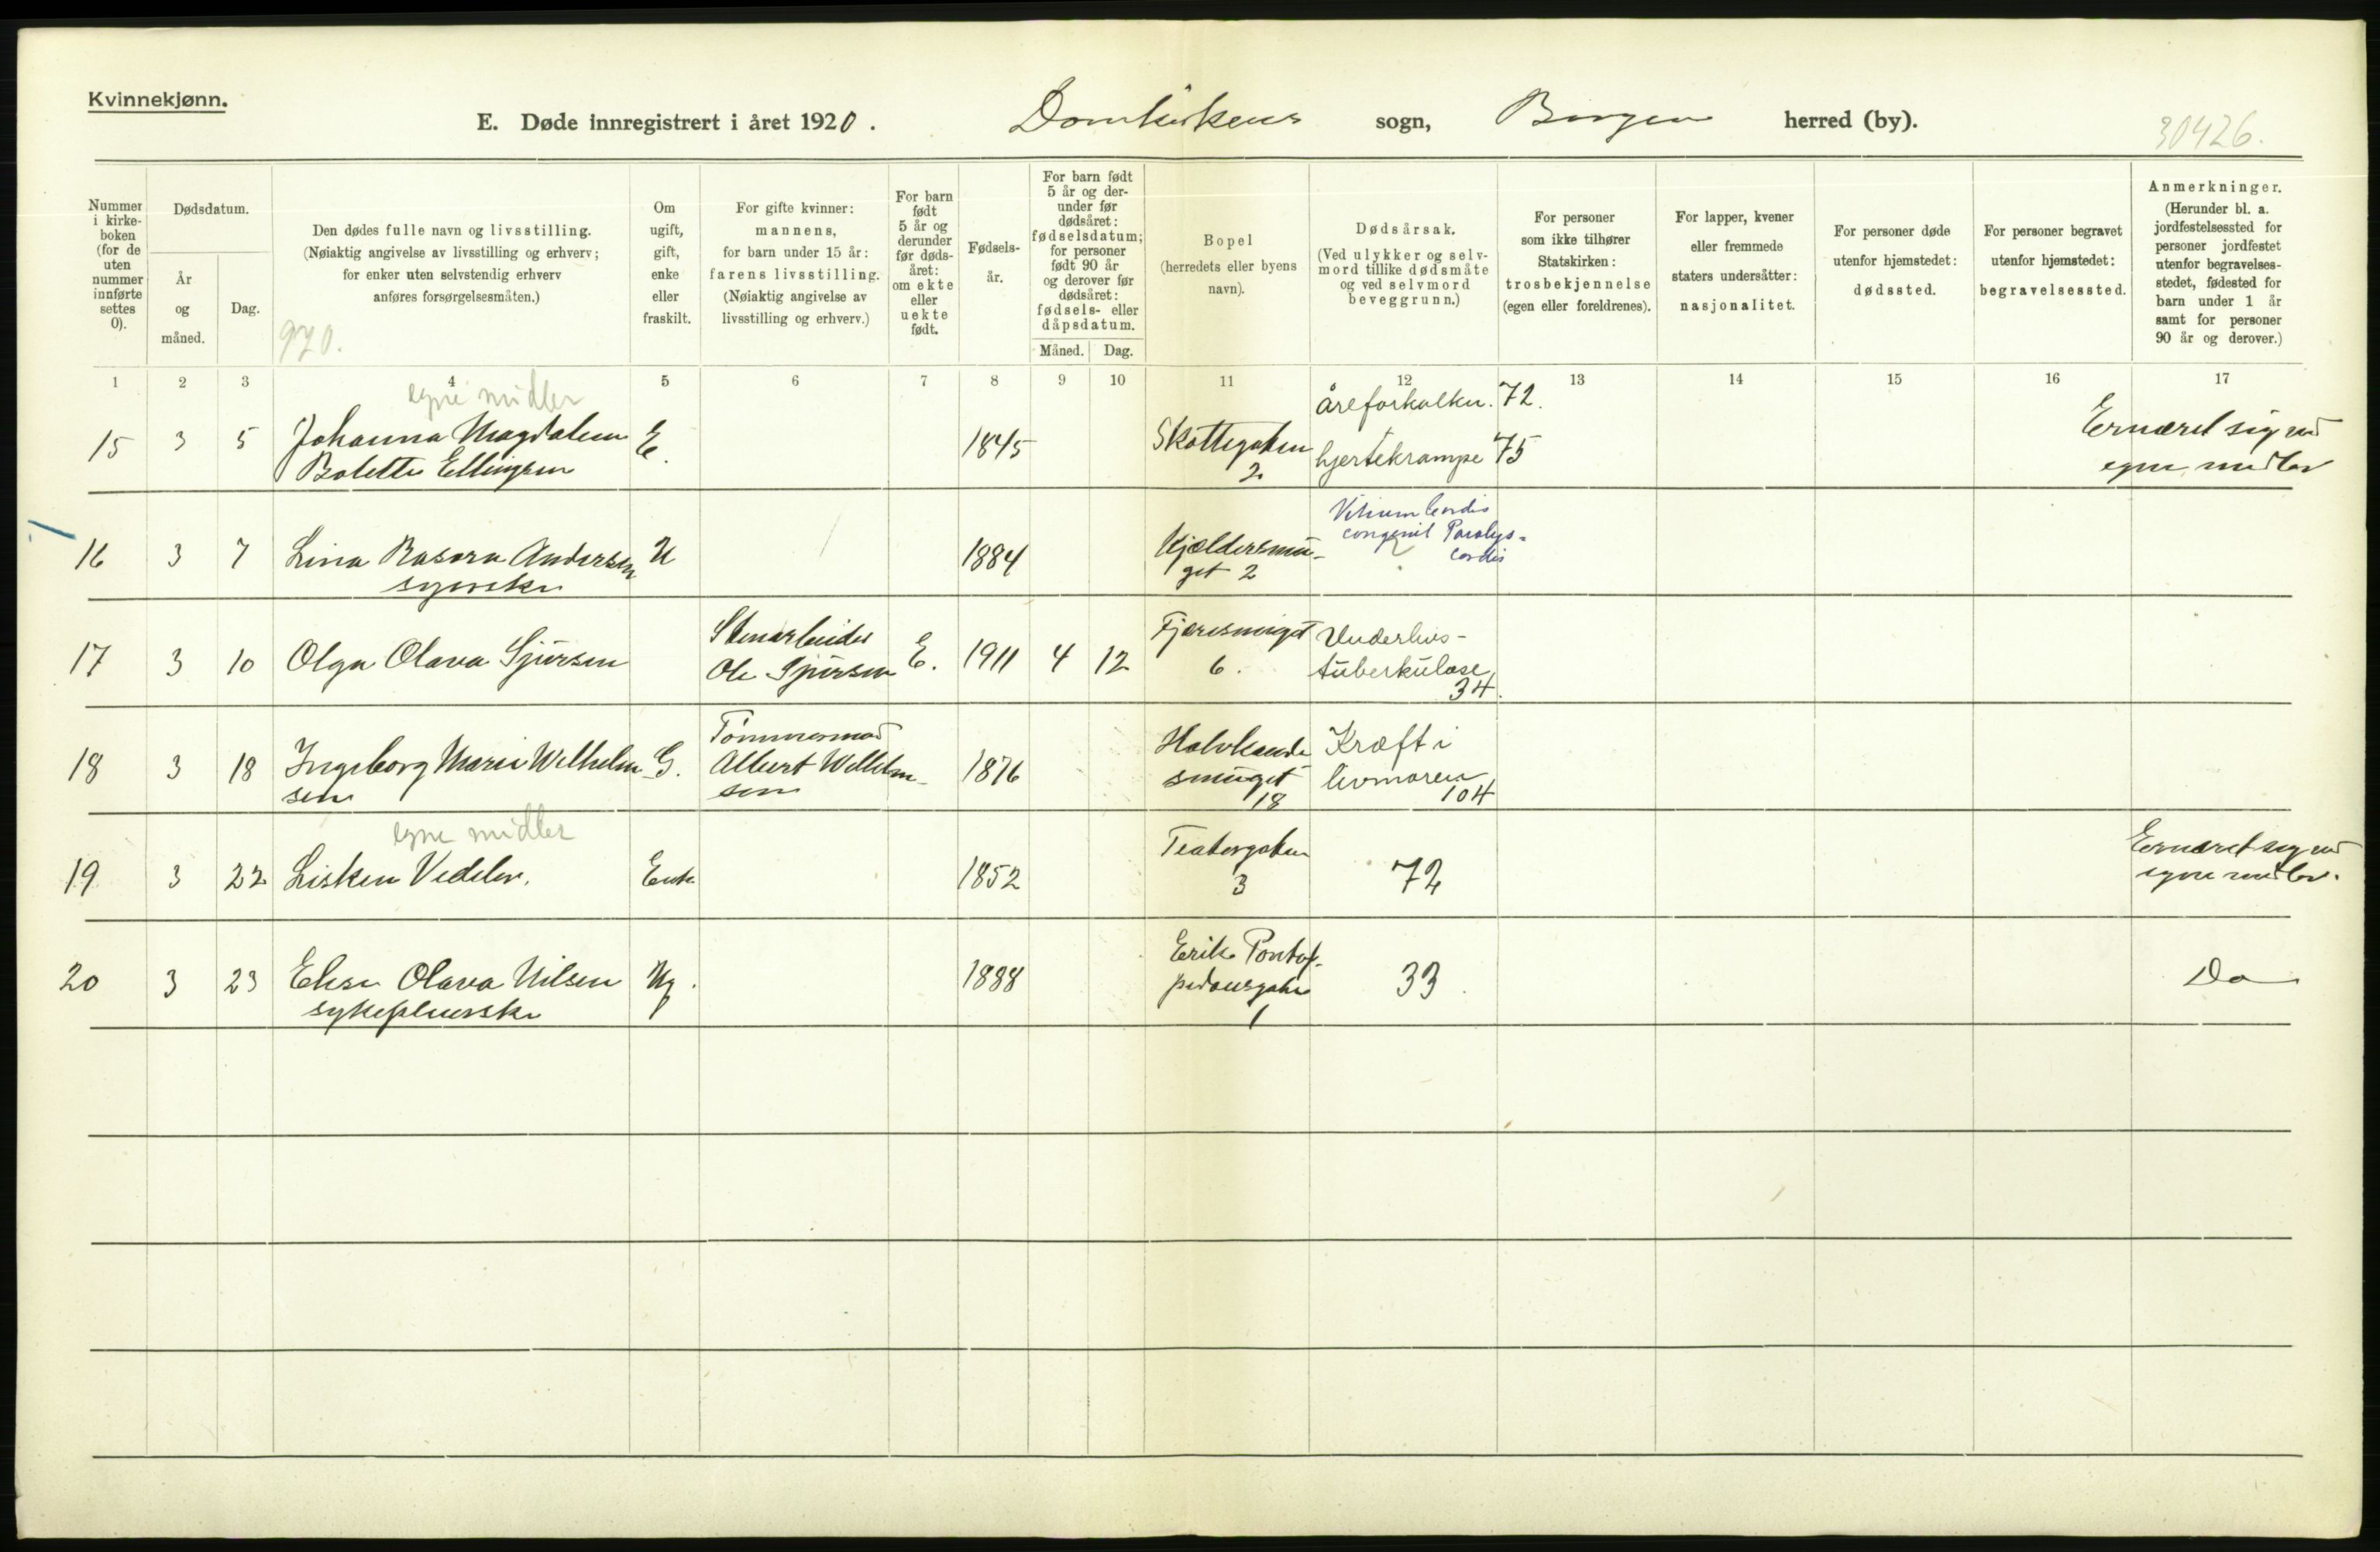 Kvinnekjønn.
E. Døde innregistrert i året 1920. Domkirkens sogn, Bergen herred (by). 30426.
Nummer i kirke-boken (for de uten nummer innførte settes 0).
Dødsdatum.
År og måned.
Dag.
Den dødes fulle navn og livsstilling.
(Nøiaktig angivelse av livsstilling og erhverv;
for enker uten selvstendig erhverv
anføres forsørgelsesmåten.)
970.
Om ugift, gift, enke eller fraskilt.
For gifte kvinner:
mannens,
for barn under 15 år:
farens livsstilling.
(Nøiaktig angivelse av
livsstilling og erhverv.)
For barn født 5 år og derunder før døds-året: om ekte eller uekte født.
Fødsels-år.
For barn født 5 år og der-under før dødsåret: fødselsdatum; for personer født 90 år og derover før dødsåret: fødsels- eller dåpsdatum.
Måned. Dag.
Bopel
(herredets eller byens
navn).
Dødsårsak.
(Ved ulykker og selv-
mord tillike dødsmåte
og ved selvmord
beveggrunn.)
For personer
som ikke tilhører
Statskirken:
trosbekjennelse
(egen eller foreldrenes).
For lapper, kvener
eller fremmede
staters undersåtter:
nasjonalitet.
For personer døde
utenfor hjemstedet:
dødssted.
For personer begravet
utenfor hjemstedet:
begravelsessted.
Anmerkninger.
(Herunder bl. a.
jordfestelsessted for
personer jordfestet
utenfor begravelses-
stedet, fødested for
barn under 1 år
samt for personer
90 år og derover.)
1 2 3 4 5 6 7 8 9 10 11 12 13 14 15 16 17
egne midler
15 3 5 Johanna Magdalena
Bolette Ellingsen
E.
1845
Skottegaten
2
åreforkalkn. 72.
hjertekrampe 75
Ernæret sig ved
egne midler
16 3 7 Lina Rasora Andersen
syerske
U
1884
Kjældersmu-
get 2
Vitium Cordis
congenit Paralys=
cordis
17 3 10 Olga Olava Sjursen
Stenarbeider
Ole Sjursen
E. 1911 4 12
Fjæresmuget
6.
Underlivs-
tuberkulose
34.
18 3 18 Ingeborg Marie Wilhelm-
sen
G.
Tømmermand
Albert Wilhelm-
sen
1876
Halvkande
smuget
18
Kræft i
livmoren
104
egne midler
19 3 22 Lisken Vedeler.
Enke
1852
Teatergaten
3
72
Ernæret sig ved
egne midler.
20 3 23 Elise Olava Nilsen
sykepleierske
Ug.
1888
Erik Pontop-
pidansgate
1
33.
Do